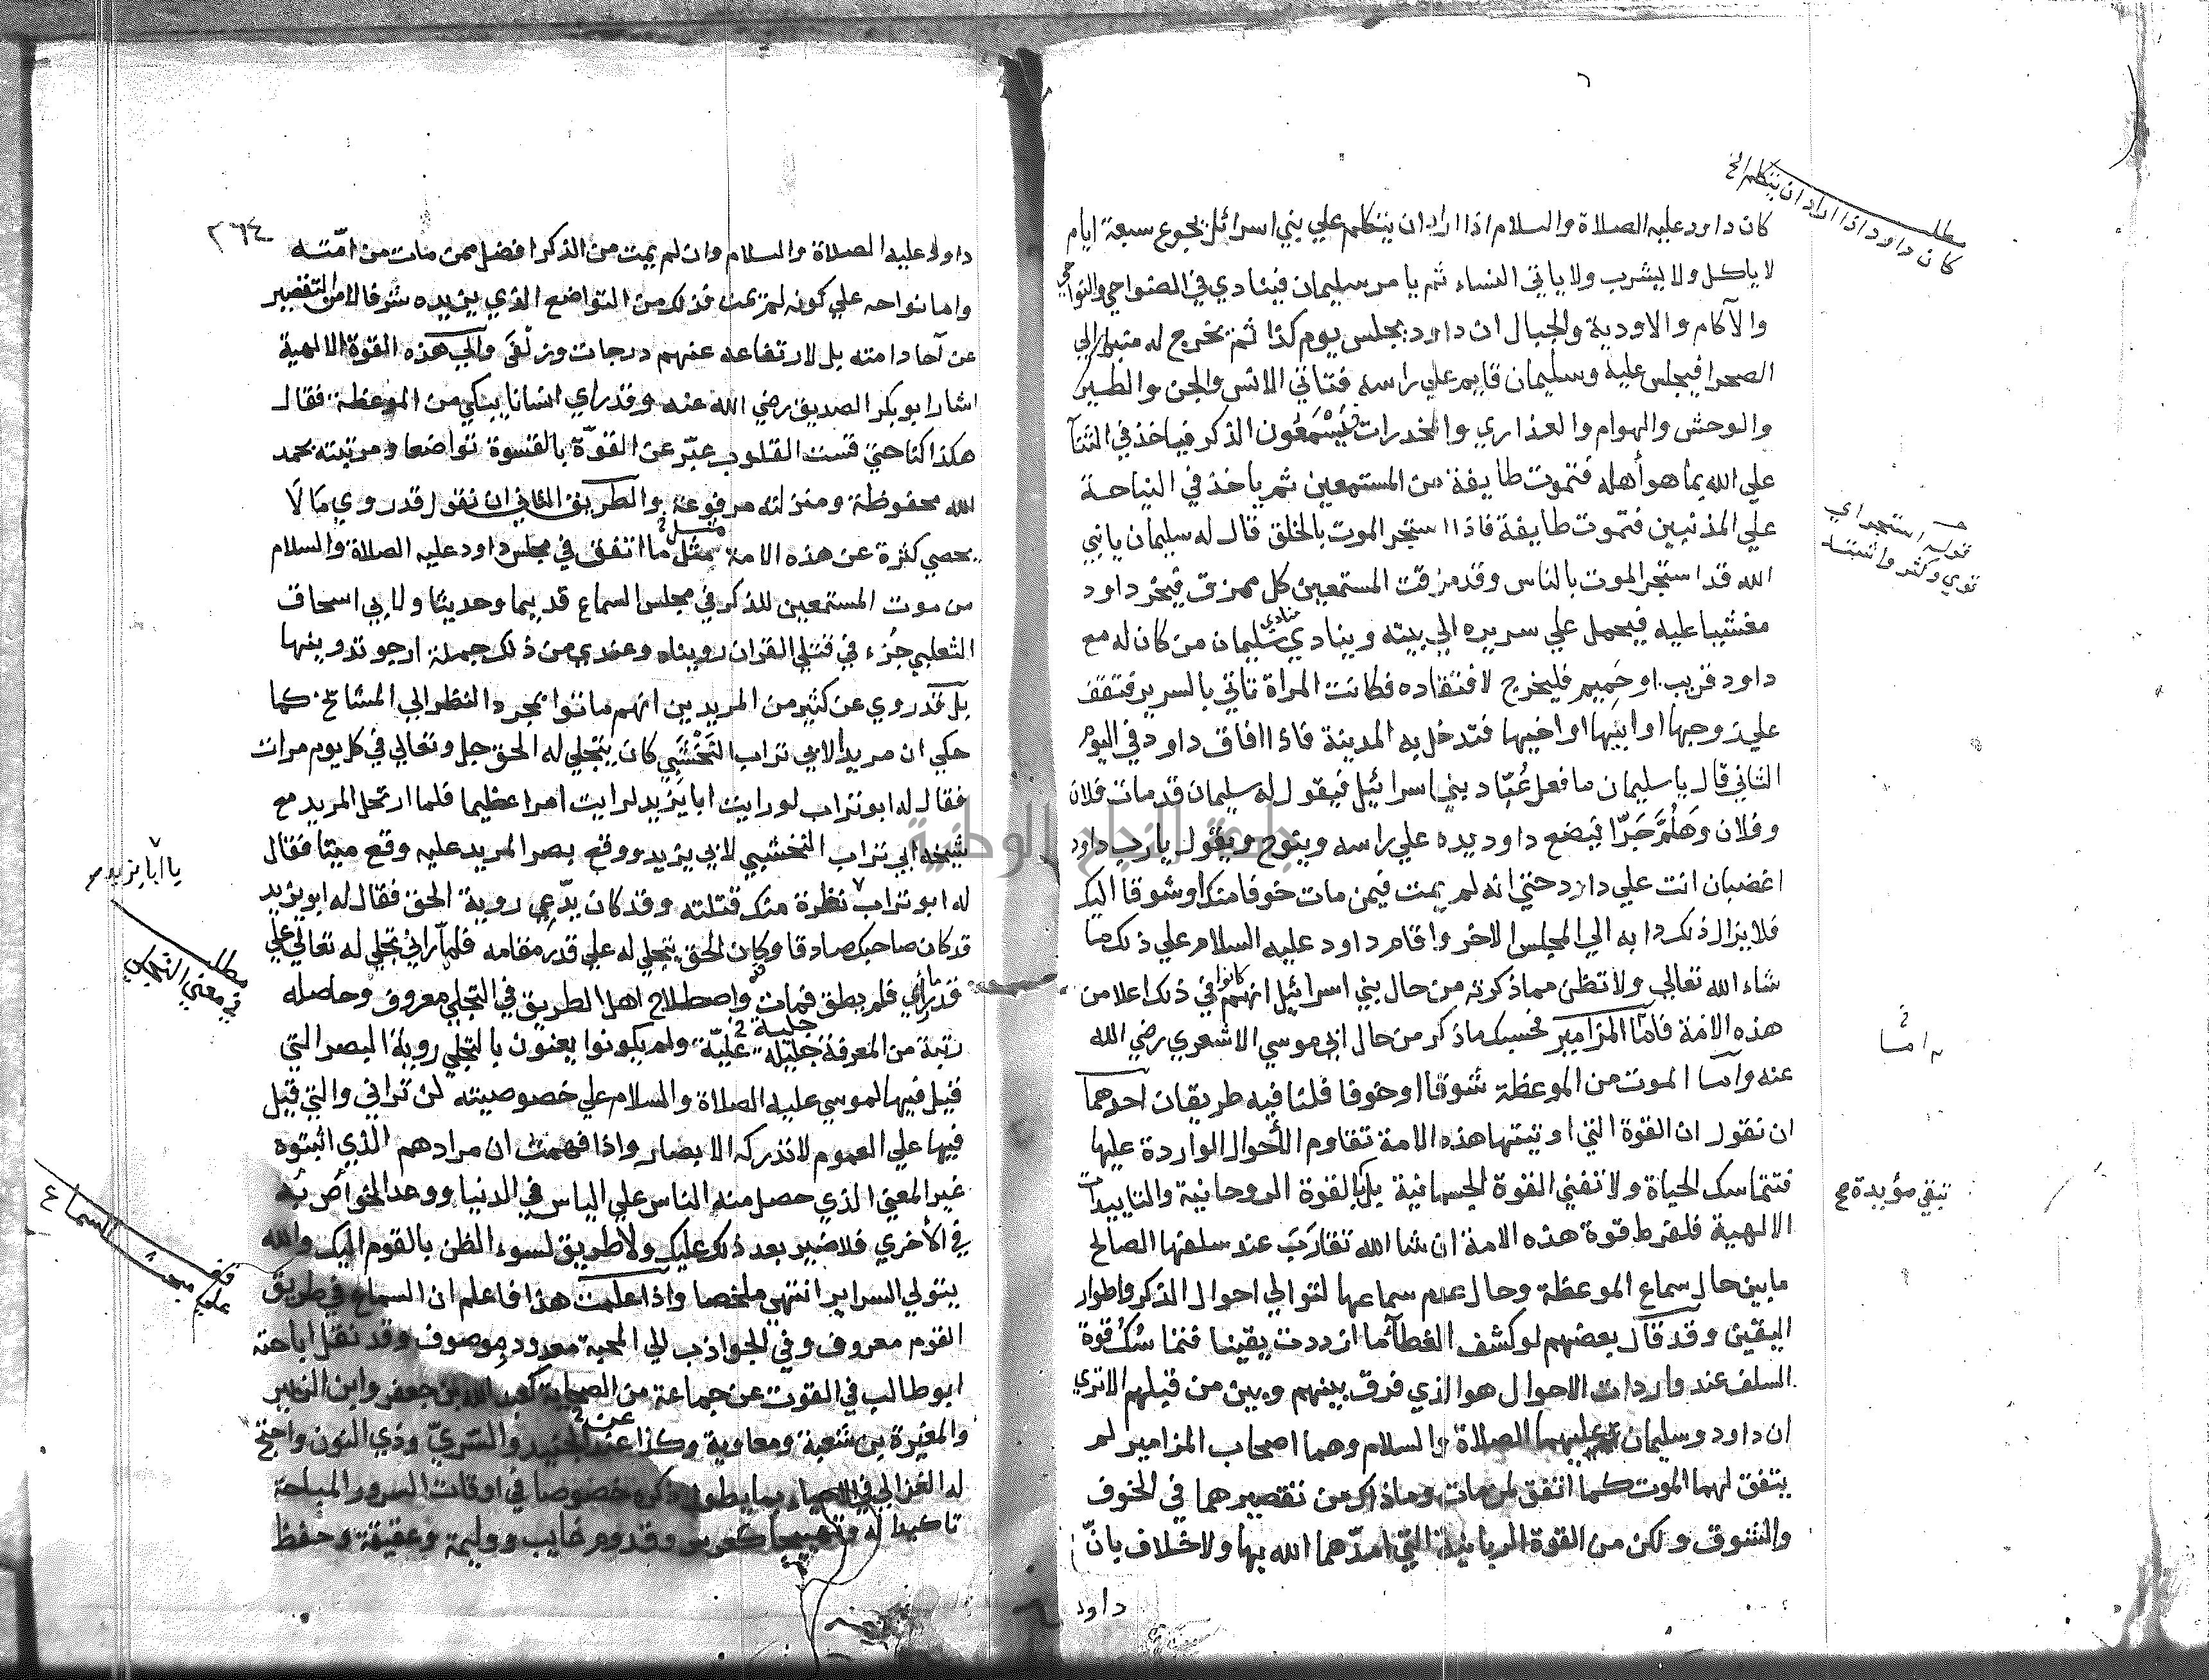 كان داود عليه الصلاة والسلام اذا اراد ان يتكلم علي بني اسرائيل يجوع سبعة ايام
لا ياكل ولا يشرب ولا ياتي النساء ثم يامر سليمان فينادي في الضواحي والنواحي
والآكام والاودية والجبال ان داود يجلس يوم كذا ثم يخرج له منبرا الي
الصحرا فيجلس عليه وسليمان قايم علي راسه فتاتي الانس والجن والطير
والوحش والهوام والعذاري والمخدرات يسمعون الذكر فياخذ في الثنآ
علي الله بما هو أهله فتموت طايفة من المستمعين ثم ياخذ في النياحة
علي المذنبين فتموت طايفة فاذا استجر الموت بالخلق قال له سليمان يا نبي
الله قد استجر الموت بالناس وقد مزقت المستمعين كل ممزق فيخر داود
مغشيا عليه فيحمل علي سريره الي بيته وينادي منادي سليمان من كان له مع
داود قريب او حميم فليخرج لافتقاده فكانت المراة تاتي بالسرير فتقف
علي زوجها او ابيها او اخيها فتدخل به المدينة فاذا افاق داود في اليوم
الثاني قال يا سليمان ما فعل عُبّاد بني اسرائيل فيقول له سليمان قد مات فلان
وفلان وهَلُمَّ جَرّا فيضع داود يده علي راسه وينوح ويقول يا رب داود
اغضبان انت علي داود حتي انه لم يمت فيمن مات خوفا منك او شوقا اليك
فلا يزال ذلك دابه الي المجلس الاخر واقام داود عليه السلام علي ذلك ما
شاء الله تعالي ولا تظن مما ذكرته من حال بني اسرائيل انهم كانوا في ذلك اعلا من
هذه الامة فامّا المزامير فحسبك ما ذكر من حال ابي موسي الاشعري رضي الله
عنه وآما الموت من الموعظة شوقا او خوفا فلنا فيه طريقان احدهما
ان نقول ان القوة التي اوتيتها هذه الامة تقاوم الأحوال الواردة عليها
فتتماسك الحياة ولا تفني القوة الجسمانية بل بالقوة الروحانية والتاييدات
الالهية فلفرط قوة هذه الامة ان شا الله تقارَبَ عند سلفها الصالح
ما بين حال سماع الموعظة وحال عدم سماعها لتوالي احوال الذكر واطوار
اليقين وقد قال بعضهم لو كشف الغطآ ما ازددت يقينا فتماسُك قوة
السلف عند واردات الاحوال هو الذي فرق بينهم وبين من قبلهم الا تري
ان داود وسليمان عليهما الصلاة والسلام وهما اصحاب المزامير لم
يتفق لهما الموت كما اتفق لمن مات وما ذاك من تقصيرهما في الخوف
والشوق ولكن من القوة الربانية التي امدّهما الله بها ولا خلاف بانّ
داود
مطلب
كان داود اذا اراد ان يتكلم الخ
قوله استجر اي
قوي وكثر واشتد
اما
تبقي مؤيدة
٢٦٤
داود عليه الصلاة والسلام وان لم يمت من الذكر افضل ممن مات من امّته
واما نواحه علي كونه لم يمت فذلك من التواضع الذي يزيده شرفا لا من التقصير
عن آحاد امته بل لارتفاعه عنهم درجات وزلْفَي والي هذه القوة الالهية
اشار ابو بكر الصديق رضي الله عنه وقد راي انسانا يبكي من الموعظة فقال
هكذا كنا حتي قست القلوب عبّر عن القوّة بالقسوة تواضعا ومرتبته بحمد
الله محفوظة ومنزلته مرفوعة والطريق الثاني ان نقول قد روي مَا لَا
يحصي كثرة عن هذه الامة بمثل ما اتفق في مجلس داود عليه الصلاة والسلام
من موت المستمعين للذكر في مجلس السماع قديما وحديثا ولابي اسحاق
الثعلبي جُزء في قتلي القران رويناه وعندي من ذلك جملة ارجو تدوينها
بل قد روي عن كثير من المريدين انهم ماتوا بمجرد النظر الي المشائخ كما
حكي ان مريدا لابي تراب النَخْشَبِي كان يتجلي له الحق جل وتعالي في كل يوم مرات
فقال له ابو تراب لو رايت ابا يزيد لرايت امرا عظيما فلما ارتحل المريد مع
شيخه ابي تراب النخشبي لابي يزيد ووقع بصر المريد عليه وقع ميتا فقال
له ابو تراب نظرة منك قتلته وقد كان يدّعي روية الحق فقال له ابو يزيد
قد كان صاحبك صادقا وكان الحق يتجلي له علي قدر مقامه فلمّا راني تجلي له تعالي علي
قدر ما راي فلم يطق فمات واصطلاح اهل الطريق في التجلي معروف وحاصله
رتبة من المعرفة جليلة جلية عليّة ولم يكونوا يعنون بالتجلي روية البصر التي
قيل فيها لموسي عليه الصلاة والسلام علي خصوصيته لن تراني والتي قيل
فيها علي العموم لا تدركه الابصار واذا فهمت ان مرادهم الذي اثبتوه
غير المعني الذي حصل منه الناس علي الياس في الدنيا ووعد الخواصُ به
في الأخري فلا ضير بعد ذلك عليك ولا طريق لسوء الظن بالقوم اليك والله
يتولي السراير انتهي ملخصا واذا علمت هذا فاعلم ان السماع في طريق
القوم معروف وفي الجواذب الي المحبة معدود موصوف وقد نقل اباحته
ابو طالب في القوت عن جماعة من الصحابة كعبد الله بن جعفر وابن الزبير
والمغيرة بن شعبة ومعاوية وكذا عن الجنيد والسَريّ وذي النون واحتج
له الغزالي في الاحياء بما يطول ذكره خصوصا في اوقات السرور المباحة
تاكيدا له كعرس وقدوم غايب ووليمة وعقيقة وحفظ
يا ابا يزيد
مطلب
في معني التجلي
قف
علي مبحث السماع
جامعة النجاح الوطنية